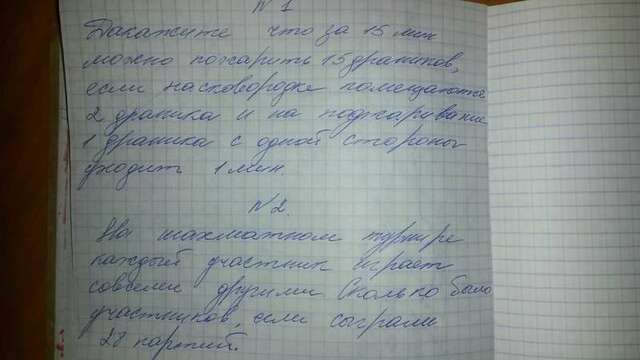 N 1
Дакажите что за 15 мин
можно пожарить 15 драников,
если насковородке помещаются
2 драника и на поджаривание
1 драника с одной стороны
уходить 1 мин.
N 2.
На шахматном турнире
каждый участник играет
совсеми другими Сколько было
участников, если сыграли
28 партий.